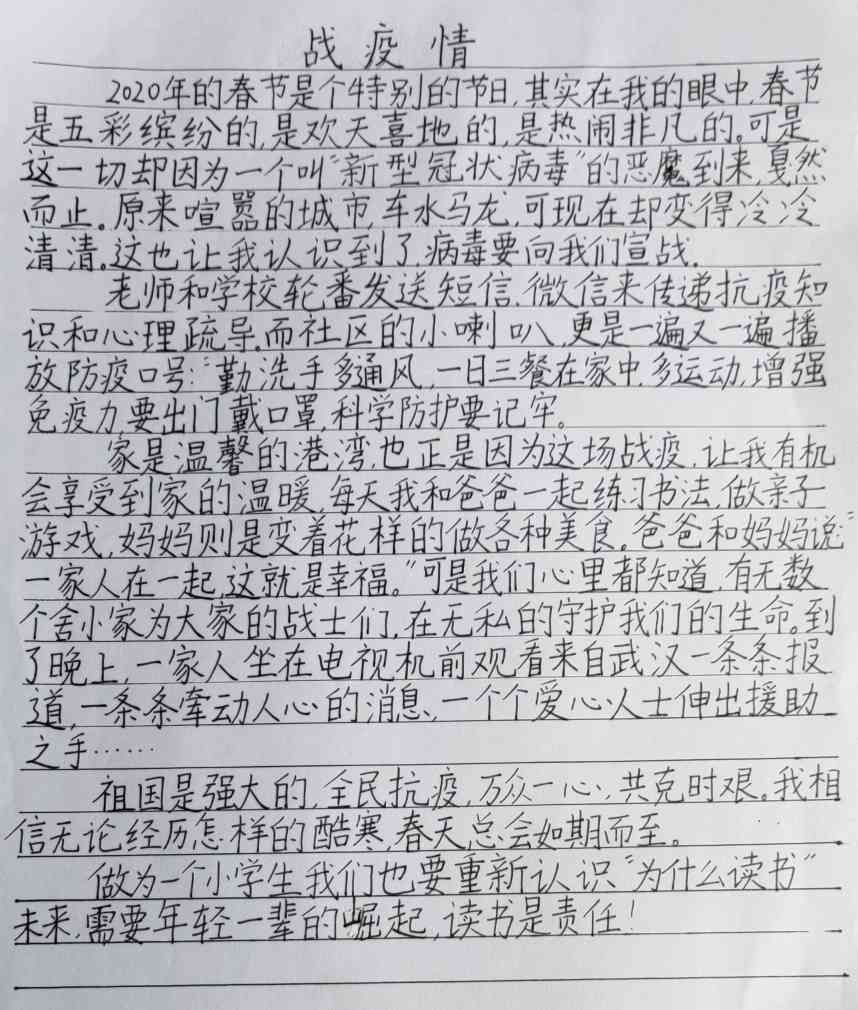 战疫情
2020年的春节是个特别的节日,其实在我的眼中,春节
是五彩缤纷的,是欢天喜地的,是热闹非凡的。可是
这一切却因为一个叫“新型冠状病毒”的恶魔到来,戛然
而止。原来喧嚣的城市,车水马龙,可现在却变得冷冷
清清。这也让我认识到了,病毒要向我们宣战.
老师和学校轮番发送短信.微信来传递抗疫知
识和心理疏导.而社区的小喇叭,更是一遍又一遍播
放防疫口号:“勤洗手多通风,一日三餐在家中,多运动,增强
免疫力,要出门戴口罩,科学防护要记牢。
家是温馨的港湾,也正是因为这场战疫,让我有机
会享受到家的温暖,每天我和爸爸一起练习书法,做亲子
游戏,妈妈则是变着花样的做各种美食。爸爸和妈妈说:“
一家人在一起,这就是幸福。”可是我们心里都知道,有无数
个舍小家为大家的战士们,在无私的守护我们的生命。到
了晚上,一家人坐在电视机前观看来自武汉一条条报
道,一条条牵动人心的消息、一个个爱心人士伸出援助
之手……
祖国是强大的,全民抗疫,万众一心,共克时艰。我相
信无论经历怎样的酷寒,春天总会如期而至。
做为一个小学生我们也要重新认识“为什么读书”
未来,需要年轻一辈的崛起,读书是责任!